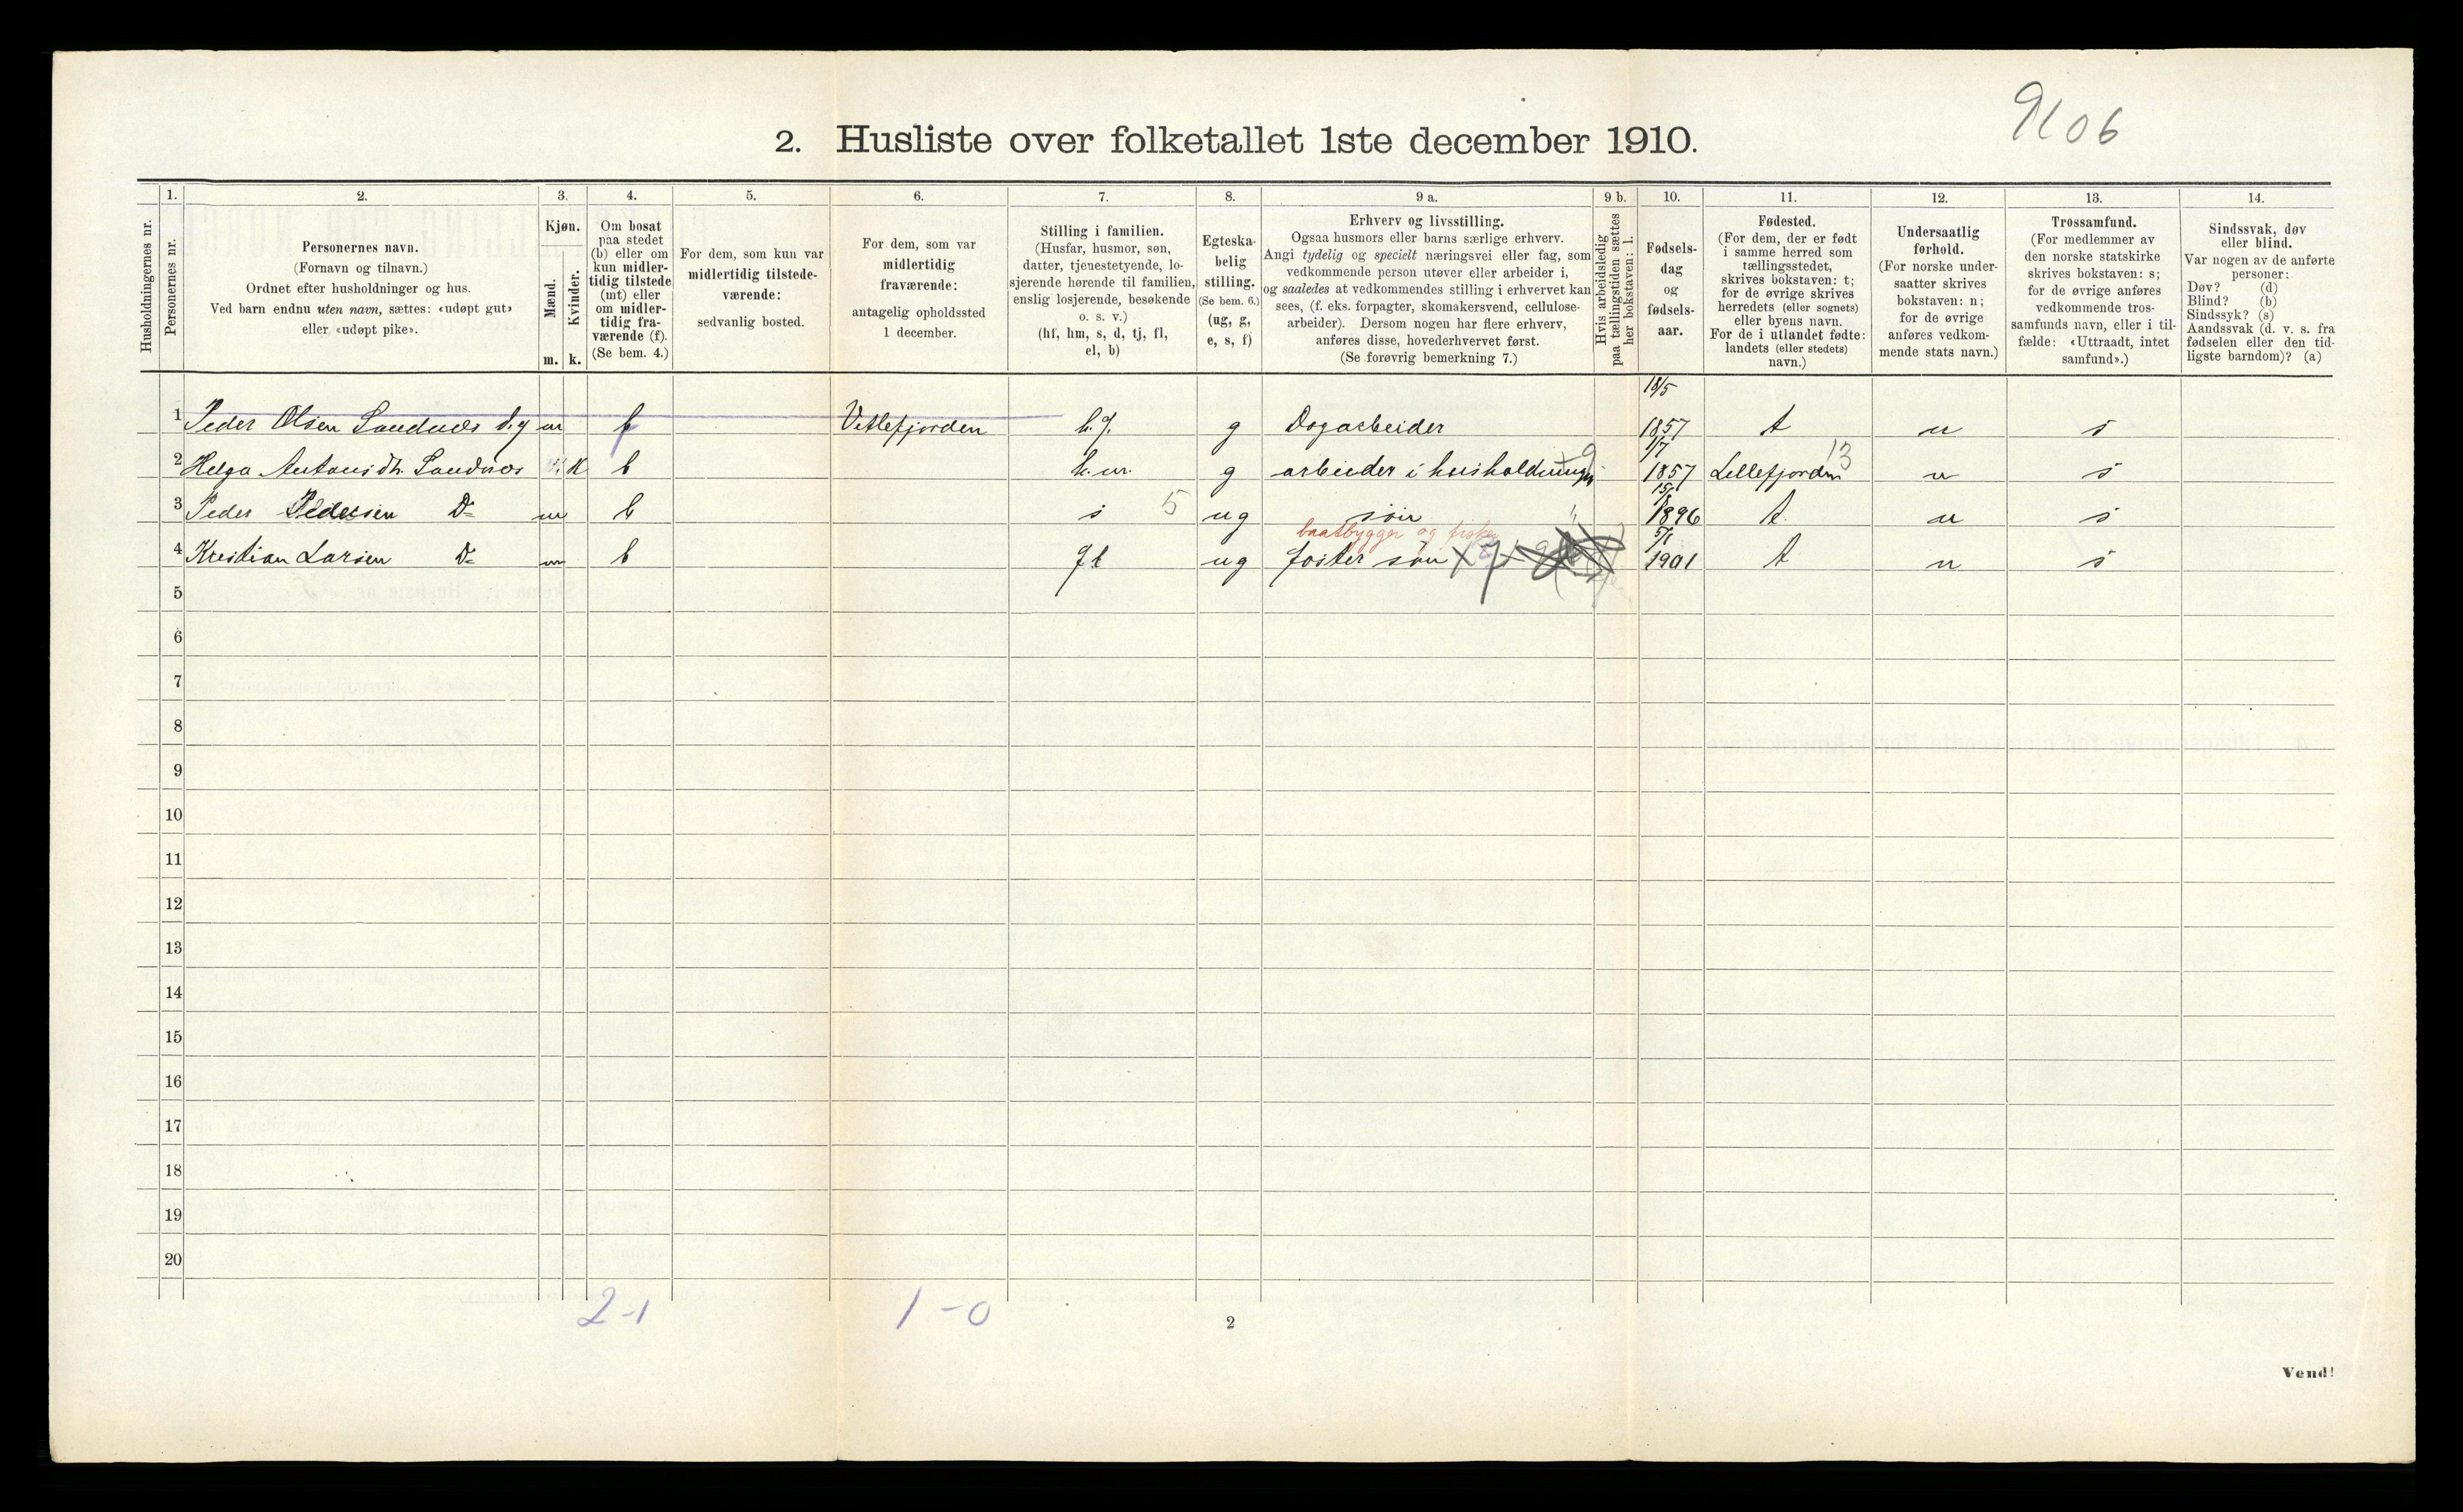 9106
2. Husliste over folketallet 1ste december 1910.
Husholdningernes nr.
1. Personernes nr.
2. Personernes navn.
(Fornavn og tilnavn.)
Ordnet efter husholdninger og hus.
Ved barn endnu uten navn, sættes: «udøpt gut»
eller «udøpt pike».
3. Kjøn.
Mænd. m.
Kvinder. k.
4. Om bosat
paa stedet
(b) eller om
kun midler-
tidig tilstede
(mt) eller
om midler-
tidig fra-
værende (f).
(Se bem. 4.)
5. For dem, som kun var
midlertidig tilstede-
værende:
sedvanlig bosted.
6. For dem, som var
midlertidig
fraværende:
antagelig opholdssted
1 december.
7. Stilling i familien.
(Husfar, husmor, søn,
datter, tjenestetyende, lo-
sjerende hørende til familien,
enslig losjerende, besøkende
o. s. v.)
(hf, hm, s, d, tj, fl,
el, b)
8. Egteska-
belig
stilling.
(Se bem. 6.)
(ug, g,
e, s, f)
9 a. Erhverv og livsstilling.
Ogsaa husmors eller barns særlige erhverv.
Angi tydelig og specielt næringsvei eller fag, som
vedkommende person utøver eller arbeider i,
og saaledes at vedkommendes stilling i erhvervet kan
sees, (f. eks. forpagter, skomakersvend, cellulose-
arbeider). Dersom nogen har flere erhverv,
anføres disse, hovederhvervet først.
(Se forøvrig bemerkning 7.)
9 b. Hvis arbeidsledig
paa tællingstiden sættes
her bokstaven: l.
10. Fødsels-
dag
og
fødsels-
aar.
11. Fødested.
(For dem, der er født
i samme herred som
tællingsstedet,
skrives bokstaven: t;
for de øvrige skrives
herredets (eller sognets)
eller byens navn.
For de i utlandet fødte:
landets (eller stedets)
navn.)
12. Undersaatlig
forhold.
(For norske under-
saatter skrives
bokstaven: n;
for de øvrige
anføres vedkom-
mende stats navn.)
13. Trossamfund.
(For medlemmer av
den norske statskirke
skrives bokstaven: s;
for de øvrige anføres
vedkommende tros-
samfunds navn, eller i til-
fælde: «Uttraadt, intet
samfund».)
14. Sindssvak, døv
eller blind.
Var nogen av de anførte
personer:
Døv? (d)
Blind? (b)
Sindssyk? (s)
Aandssvak (d. v. s. fra
fødselen eller den tid-
ligste barndom)? (a)
18/5
1 Peder Olsen m Vetlefjorden h.f. g Dagarbeider 1857 t n s
1/7
2 Helga k b h.m. g arbeider i husholdningen 1857 Lillefjorden 13 n s
15/8
3 Peder Pedersen Do m b s 5 ug søn 1896 t n s
baatbygger og fisker
5/1
4 Kristian Larsen Do m b fl ug foster søn 1901 t n s
5
6
7
8
9
10
11
12
13
14
15
16
17
18
19
20
2-1 1-0
2
Vend!